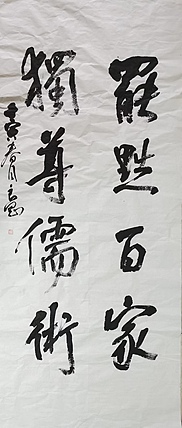 罷黜百家
獨尊儒術